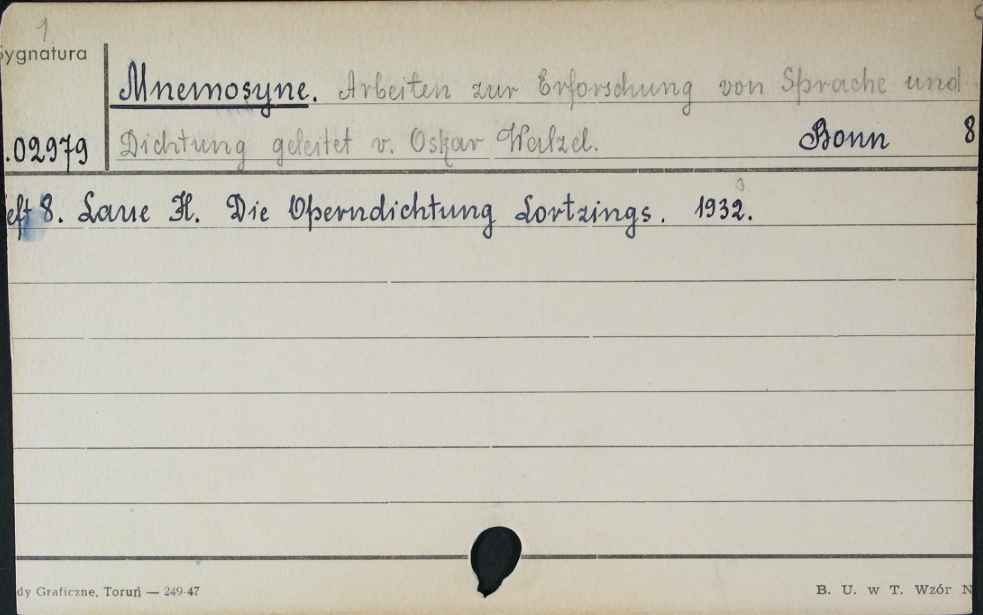 1
Sygnatura
Mnemosyne. Arbeiten zur Erforschung von Sprache und
.02979 Dichtung geleitet v. Oskar Walzel. Bonn 8
eft 8. Laue H. Die Operndichtung Lortzings. 1932.
dy Graficzne, Toruń — 249-47 B. U. w T. Wzór N